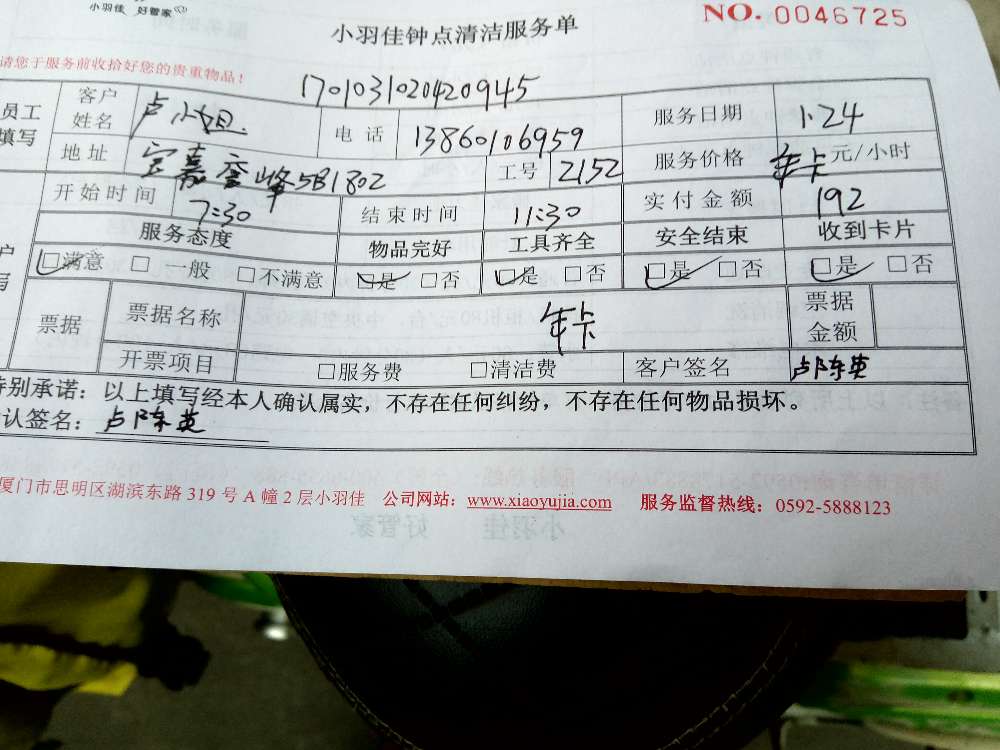 小羽佳 好管家
小羽佳钟点清洁服务单
NO. 0046725
请您于服务前收拾好您的贵重物品！
1701031020420945
员工填写 客户姓名 卢小姐 电话 13860106959 服务日期 1.24
地址 宝嘉誉峰5B1802 工号 2152 服务价格 年卡 元/小时
开始时间 7:30 结束时间 11:30 实付金额 192
服务态度 物品完好 工具齐全 安全结束 收到卡片
□满意 □一般 □不满意 □是 □否 □是 □否 □是 □否 □是 □否
票据 票据名称 年卡 票据金额
开票项目 □服务费 □清洁费 客户签名 卢陈英
特别承诺：以上填写经本人确认属实，不存在任何纠纷，不存在任何物品损坏。
认签名：卢陈英
厦门市思明区湖滨东路 319 号 A 幢 2 层小羽佳 公司网站：www.xiaoyujia.com 服务监督热线：0592-5888123